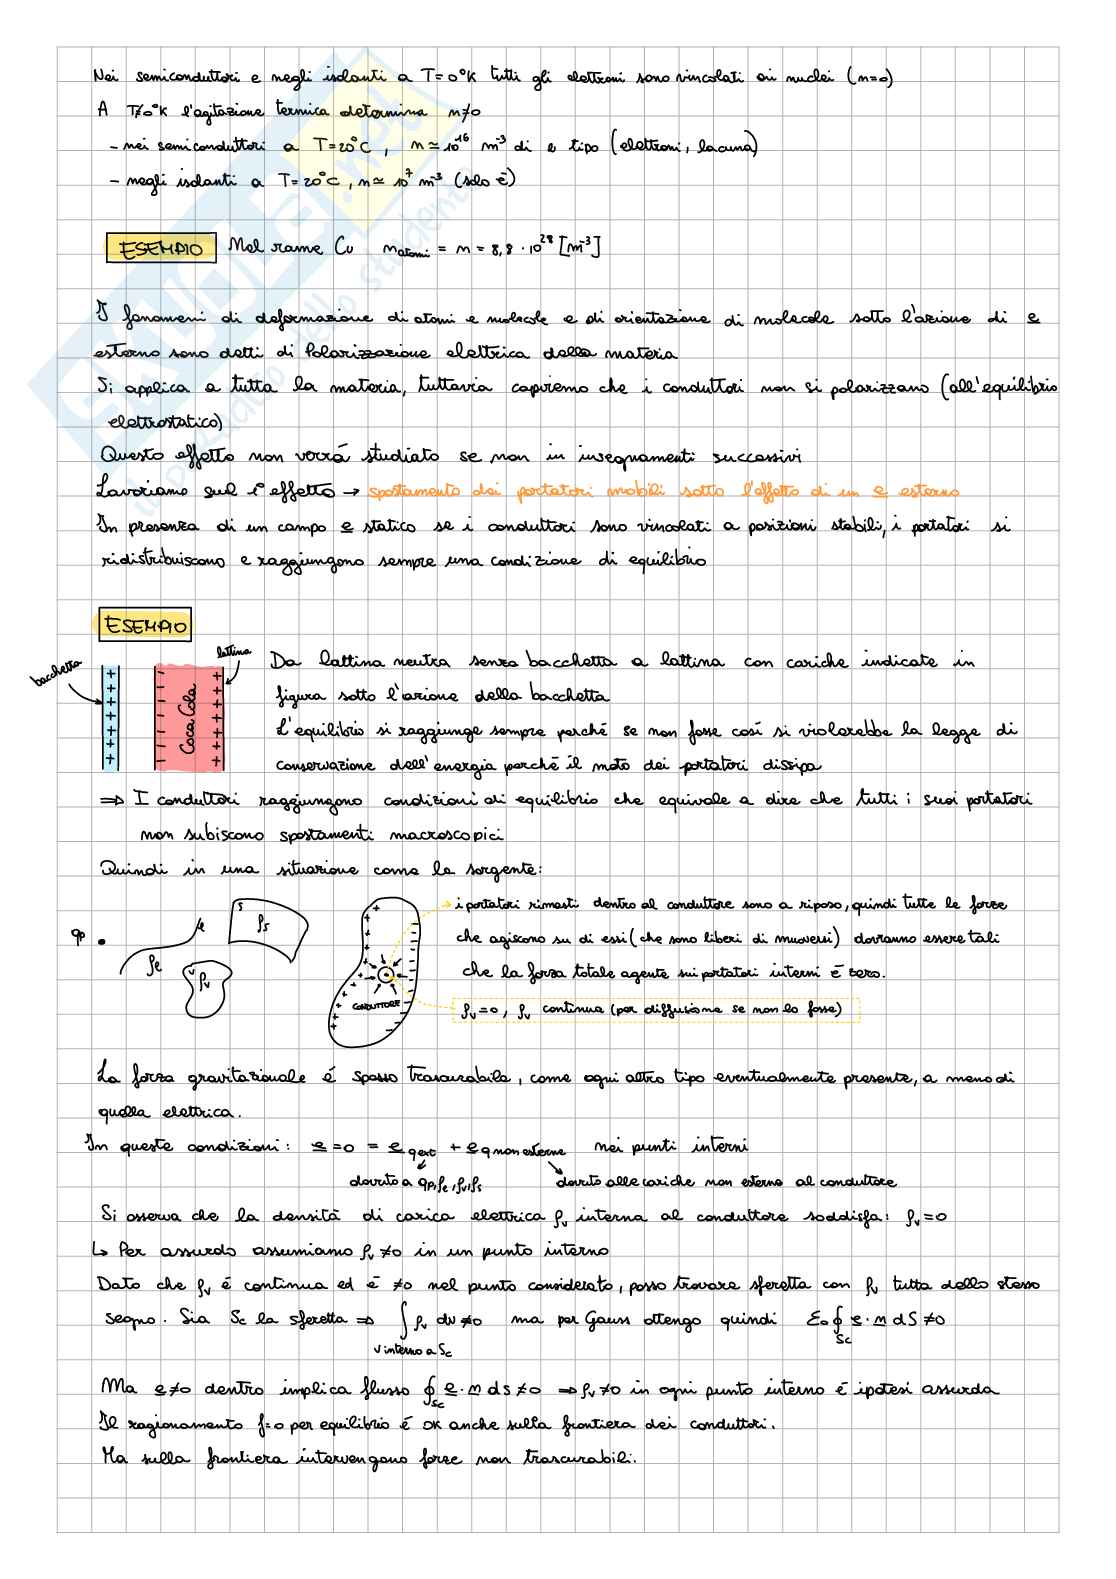 Nei semiconduttori e negli isolanti a T=0°K tutti gli elettroni sono vincolati ai nuclei (n=0)
A T≠0°K l'agitazione termica determina n≠0
- nei semiconduttori a T=20°C, n≃10¹⁶ m⁻³ di e tipo (elettroni, lacuna)
- negli isolanti a T=20°C, n≃ 10⁷ m⁻³ (solo ē)
ESEMPIO Nel rame Cu n_atomi = n = 8,8 · 10²⁸ [m⁻³]
I fenomeni di deformazione di atomi e molecole e di orientazione di molecole sotto l'azione di e
esterno sono detti di Polarizzazione elettrica della materia
Si applica a tutta la materia, tuttavia capiremo che i conduttori non si polarizzano (all'equilibrio
elettrostatico)
Questo effetto non verrá studiato se non in insegnamenti successivi
Lavoriamo sul 1° effetto → spostamento dei portatori mobili sotto l'effetto di un e esterno
In presenza di un campo e statico se i conduttori sono vincolati a posizioni stabili, i portatori si
ridistribuiscono e raggiungono sempre una condizione di equilibrio
ESEMPIO
bacchetta
lattina
Coca Cola
Da lattina neutra senza bacchetta a lattina con cariche indicate in
figura sotto l'azione della bacchetta
L'equilibrio si raggiunge sempre perché se non fosse cosí si violerebbe la legge di
conservazione dell'energia perché il moto dei portatori dissipa
⇒ I conduttori raggiungono condizioni di equilibrio che equivale a dire che tutti i suoi portatori
non subiscono spostamenti macroscopici
Quindi in una situazione come la sorgente:
qp
ℓ
ρe
S
ρs
v
ρv
CONDUTTORE
i portatori rimasti dentro al conduttore sono a riposo, quindi tutte le forze
che agiscono su di essi (che sono liberi di muoversi) dovranno essere tali
che la forza totale agente sui portatori interni é zero.
ρv=0, ρv continua (per diffusione se non lo fosse)
La forza gravitazionale é spesso trascurabile, come ogni altro tipo eventualmente presente, a meno di
quella elettrica.
In queste condizioni: e=0 = e q ext + e q non esterne nei punti interni
dovuto a qp, ρe, ρv, ρs
dovuto alle cariche non esterne al conduttore
Si osserva che la densità di carica elettrica ρv interna al conduttore soddisfa: ρv=0
↳ Per assurdo assumiamo ρv≠0 in un punto interno
Dato che ρv é continua ed é ≠0 nel punto considerato, posso trovare sferetta con ρv tutta dello stesso
segno. Sia Sc la sferetta ⇒ ∫ ρv dv ≠0 ma per Gauss ottengo quindi ε₀∮ e·n dS ≠0
v interno a Sc
Sc
Ma e≠0 dentro implica flusso ∮Sc e·n ds ≠0 ⇒ ρv≠0 in ogni punto interno é ipotesi assurda
Il ragionamento f=0 per equilibrio é ok anche sulla frontiera dei conduttori.
Ma sulla frontiera intervengono forze non trascurabili.